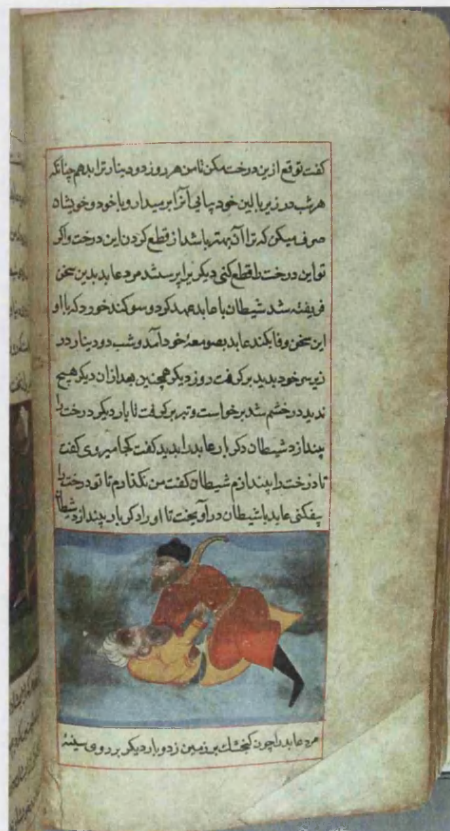 کفت توقع ازین درخت مکن تا من هر روز دو دینار ترا بدهم چنانکه
هر شب در زیر بالین خود یابی آنرا برمیدار و با خود و خویشان
صرف میکن که ترا آن بهتر باشد از قطع کردن این درخت و اکر
تو این درخت را قطع کنی دیکر یرا پرستند مرد عابد بدین سخن
فریفته شد شیطان با عابد عهد کرد و سوکند خورد که با او
این سخن وفا کند عابد بصومعهٔ خود آمد و شب دو دینار در
زیر سر خود بدید بر کرفت روز دیکر همچنین بعد ازان دیکر هیچ
ندید در خشم شد برخواست و تبر بر کرفت تا بار دیکر درخت را
بیندازد شیطان دکر بار عابد را بدید کفت کجا میروی کفت
تا درخت را بیندازم شیطان کفت من نکذارم تا تو درخت را
بیفکنی عابد با شیطان در آویخت تا او را دکر بار بیندازد شیطان
مرد عابد را چون کنجشک بر زمین زد و بار دیکر بر روی سینهٔ